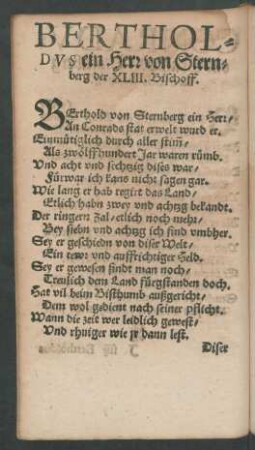 BERTHOL-
DVS ein Herr von Stern-
berg der XLIII. Bischoff.
BErthold von Sternberg ein Herr/
An Conrads stat erwelt wurd er.
Einmütiglich durch aller stim̃/
Als zwölffhundert Jar waren rümb.
Vnd acht vnd sechtzig dises war/
Fürwar ich kans nicht sagen gar.
Wie lang er hab regirt das Land/
Etlich habn zwey vnd achtzg bekandt.
Der ringern Zal/etlich noch mehr/
Bey siebn vnd achtzg ich find vmbher.
Sey er geschiedn von diser Welt/
Ein tewr vnd auffrichtiger Held.
Sey er gewesen findt man noch/
Treulich dem Land fürgstanden doch.
Hat vil beim Bisthumb außgericht/
Dem wol gedient nach seiner pflicht.
Wann die zeit wer leidlich gewest/
Vnd rhuiger wie jr dann lest.
Diser